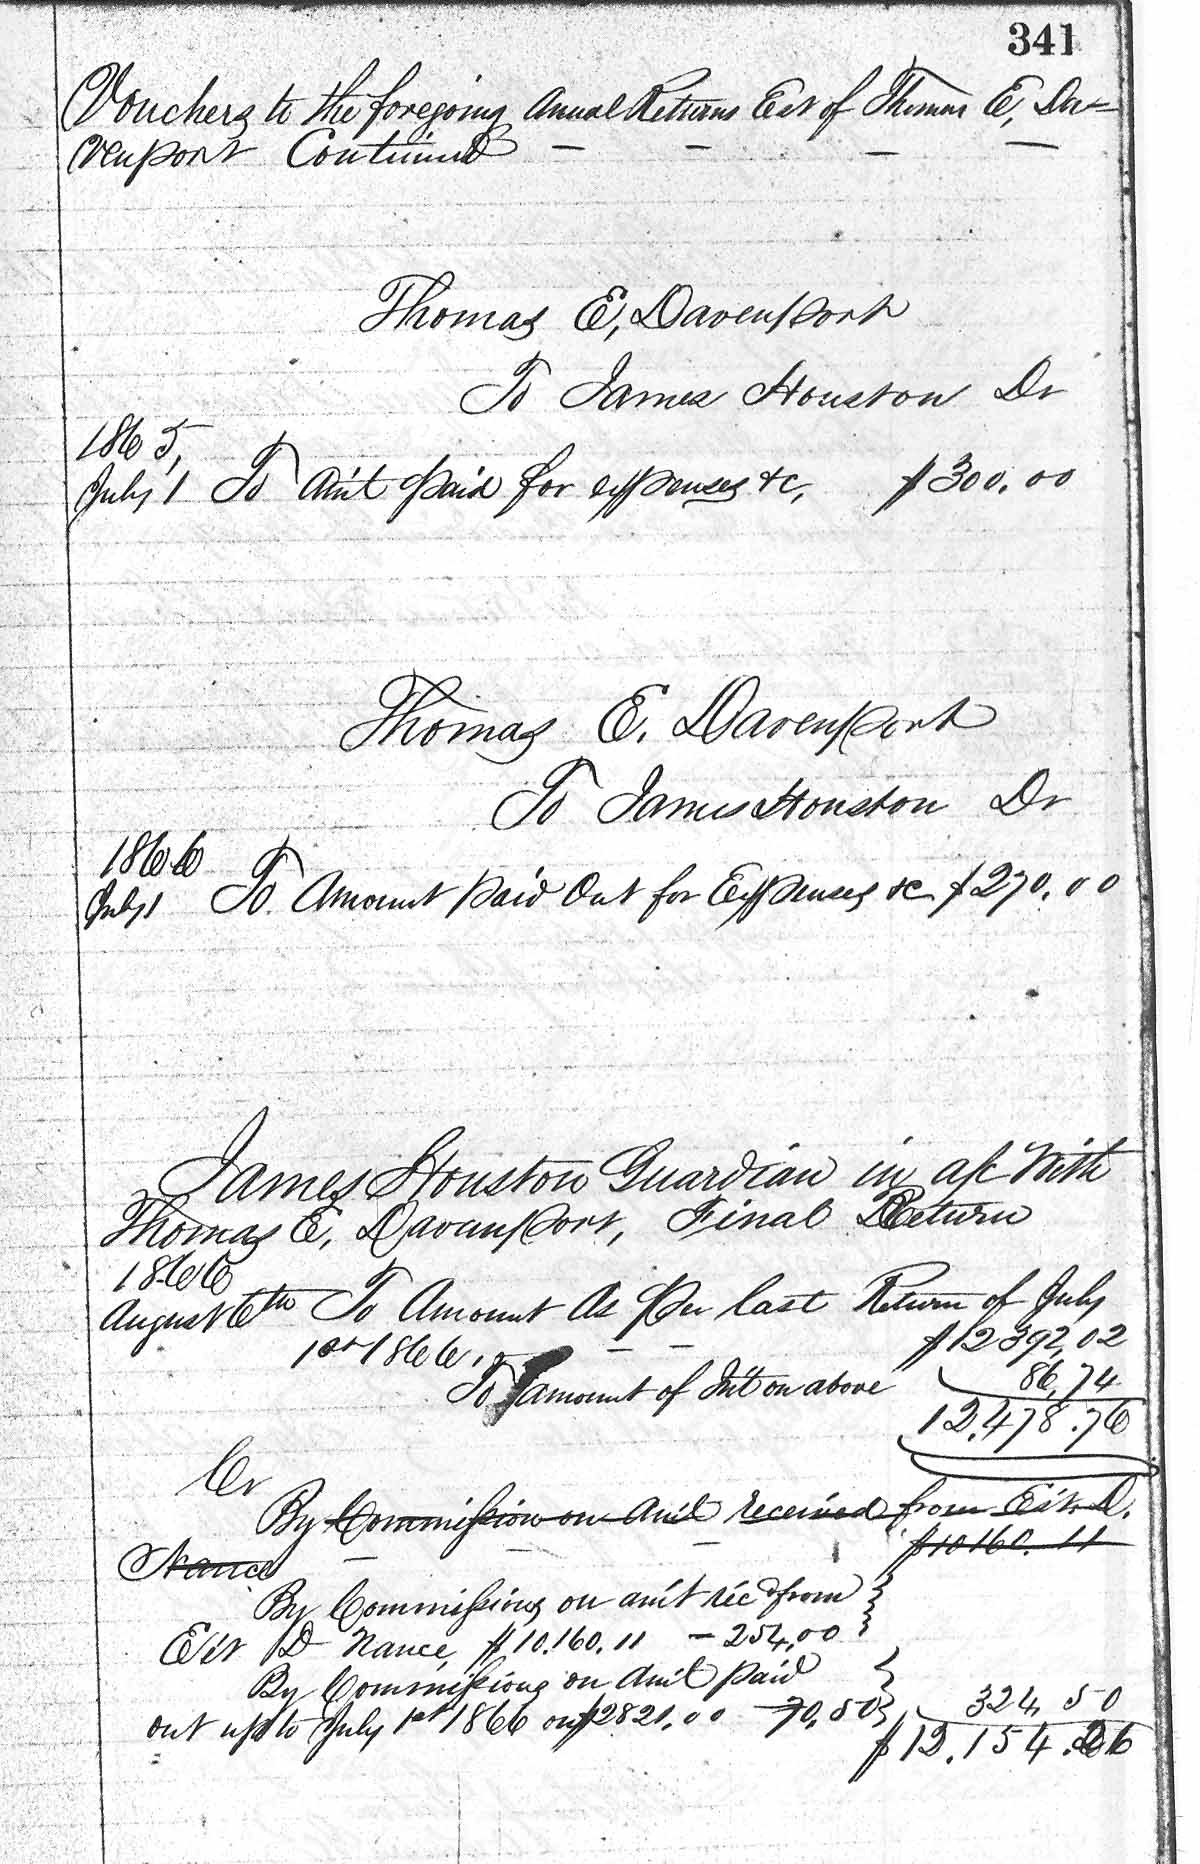 341
Vouchers to the foregoing Annual Returns Est of Thomas E, Da=
venport Continued — — — —
Thomas E, Davenport
To James Houston Dr
1865,
July 1 To Am't paid for expenses &c, $300.00
Thomas E. Davenport
To James Houston Dr
1866
July 1 To Amount paid Out for Expenses &c $270.00
James Houston Guardian in a/c With
Thomas E, Davenport, Final Return
1866
August 6th To Amount As Per last Return of July
1st 1866, — — $12392,02
To amount of Int on above 86,74
12,478.76
Cr
By Commission on Am't received from Est. D.
Nance — — — $10160.11
By Commissions on am't rec'd from
Est D Nance, $10.160.11 — 254,00
By Commissions on Am't paid
out up to July 1st 1866 on $2821.00 70,50 324,50
$12.154.26